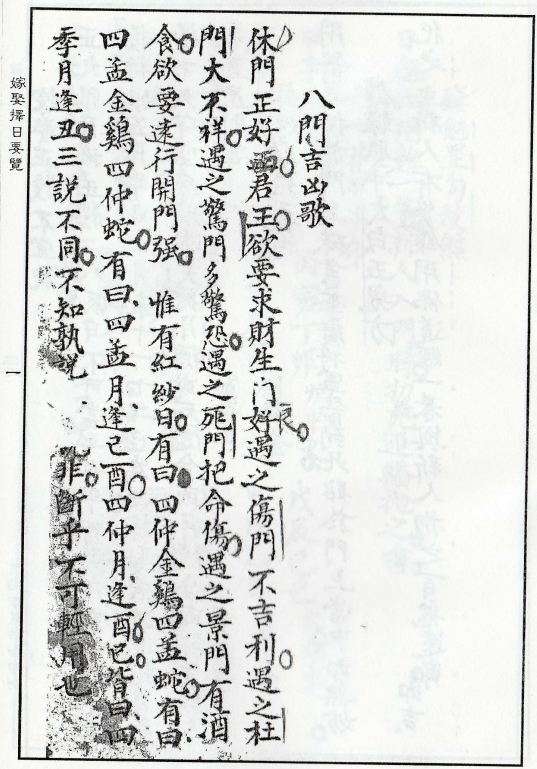 八門吉凶歌
休門正好面君王欲要求財生门好良遇之傷門不吉利遇之杜
門大不祥遇之驚門多驚恐遇之死門把命傷遇之景門有酒
食欲要遠行開門强 惟有紅紗日有曰四仲金鷄四孟蛇有曰
四孟金鷄四仲蛇有曰四孟月逢已酉四仲月逢酉已皆曰四
季月逢丑三説不同不知孰説 非斷乎不可輕用也
嫁娶擇日要覽
一